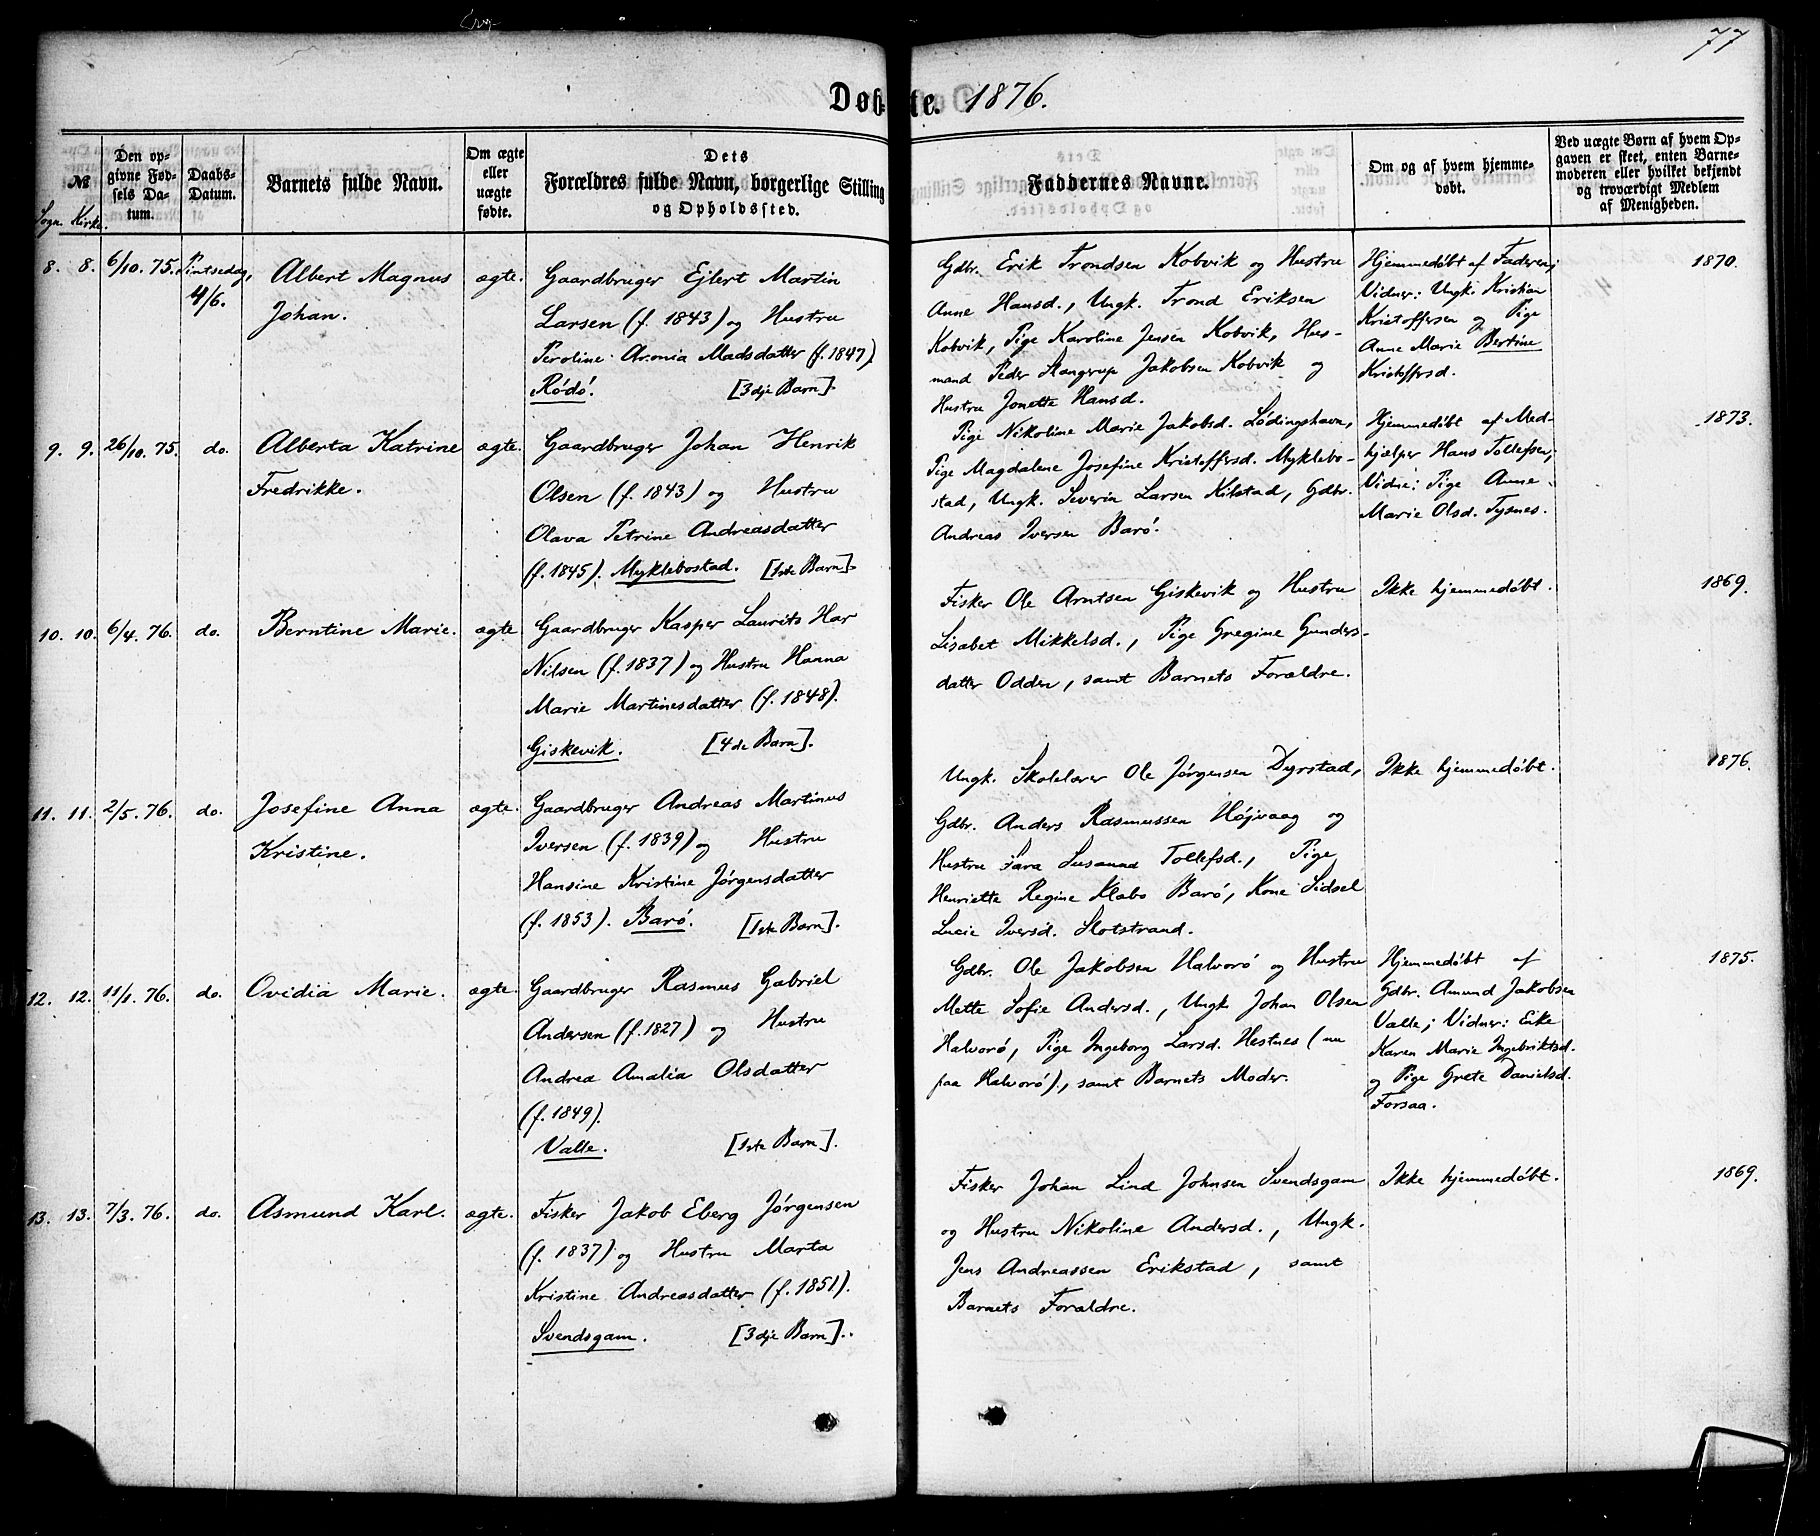 77
Døbte. 1876.
№
Sogn. Kirke.
Den op-
givne Fød-
sels Da-
tum.
Daabs-
Datum.
Barnets fulde Navn.
Om ægte
eller
uægte
fødte.
Dets
Forældres fulde Navn, borgerlige Stilling
og Opholdssted.
Faddernes Navne.
Om og af hvem hjemme-
døbt.
Ved uægte Børn af hvem Op-
gaven er skeet, enten Barne-
moderen eller hvilket bekjendt
og troværdigt Medlem
af Menigheden.
8. 8. 6/10. 75. Pintsedag,
4/6.
Albert Magnus
Johan.
ægte.
Gaardbruger Ejlert Martin
Larsen (f. 1843) og Hustru
Peroline Aronia Madsdatter (f. 1847)
Rødø. [3dje Barn].
Gdbr. Erik Trondsen Kobvik og Hustru
Anne Hansd., Ungk. Trond Eriksen
Kobvik, Pige Karoline Jensen Kobvik, Hus-
mand Peder Stangerup Jakobsen Kobvik og
Hustru Jonette Hansd.
Hjemmedøbt af Faderen;
Vidner: Ungk. Kristian
Kristoffersen og Pige
Anne Marie Bertine
Kristoffersd.
1870.
9. 9. 26/10. 75. do.
Alberta Katrine
Fredrikke.
ægte.
Gaardbruger Johan Henrik
Olsen (f. 1843) og Hustru
Olava Petrine Andreasdatter
(f. 1845). Myklebostad. [1ste Barn].
Pige Nikoline Marie Jakobsd. Lødingshavn,
Pige Magdalene Josefine Kristoffersd. Myklebo-
stad, Ungk. Severin Larsen Kilstad, Gdbr.
Andreas Iversen Barø.
Hjemmedøbt af Med-
hjælper Hans Tollefsen;
Vidne: Pige Anne
Marie Olsd. Tysnes.
1873.
10. 10. 6/4. 76. do.
Berntine Marie.
ægte
Gaardbruger Kasper Laurits Har
Nilsen (f. 1837) og Hustru Hanna
Marie Martinesdatter (f. 1848).
Giskevik. [4de Barn].
Fisker Ole Arntsen Giskevik og Hustru
Lisabet Mikkelsd., Pige Gregine Gunders-
datter Odden, samt Barnets Forældre.
Ikke hjemmedøbt.
1869.
11. 11. 2/5. 76. do.
Josefine Anna
Kristine.
ægte.
Gaardbruger Andreas Martinus
Iversen (f. 1839) og Hustru
Hansine Kristine Jørgensdatter
(f. 1853). Barø. [1ste Barn].
Ungk. Skolelærer Ole Jørgensen Dyrstad,
Gdbr. Anders Rasmussen Højvaag og
Hustru Sara Susanna Tollefsd., Pige
Henriette Regine Klæbo Barø, Kone Sidsel
Lucie Iversd. Slotstrand.
Ikke hjemmedøbt.
1876.
12. 12. 11/1. 76. do.
Ovidia Marie.
ægte.
Gaardbruger Rasmus Gabriel
Andersen (f. 1827) og Hustru
Andrea Amalia Olsdatter
(f. 1849).
Valle. [1ste Barn].
Gdbr. Ole Jakobsen Halvorø og Hustru
Mette Sofie Andersd., Ungk Johan Olsen
Halvorø, Pige Ingeborg Larsd. Hestnes (nu
paa Halvorø), samt Barnets Moder.
Hjemmedøbt af
Gdbr. Amund Jakobsen
Valle; Vidner: Enke
Karen Marie Ingebriktsd.
og Pige Grete Danielsd.
Forsaa.
1875.
13. 13. 7/3. 76. do.
Asmund Karl.
ægte.
Fisker Jakob Eberg Jørgensen
(f. 1837) og Hustru Marta
Kristine Andreasdatter (f. 1851).
Svendsgam. [3dje Barn].
Fisker Johan Lind Johnsen Svendsgam
og Hustru Nikoline Andersd., Ungk.
Jens Andreassen Erikstad, samt
Barnets Forældre.
Ikke hjemmedøbt.
1869.